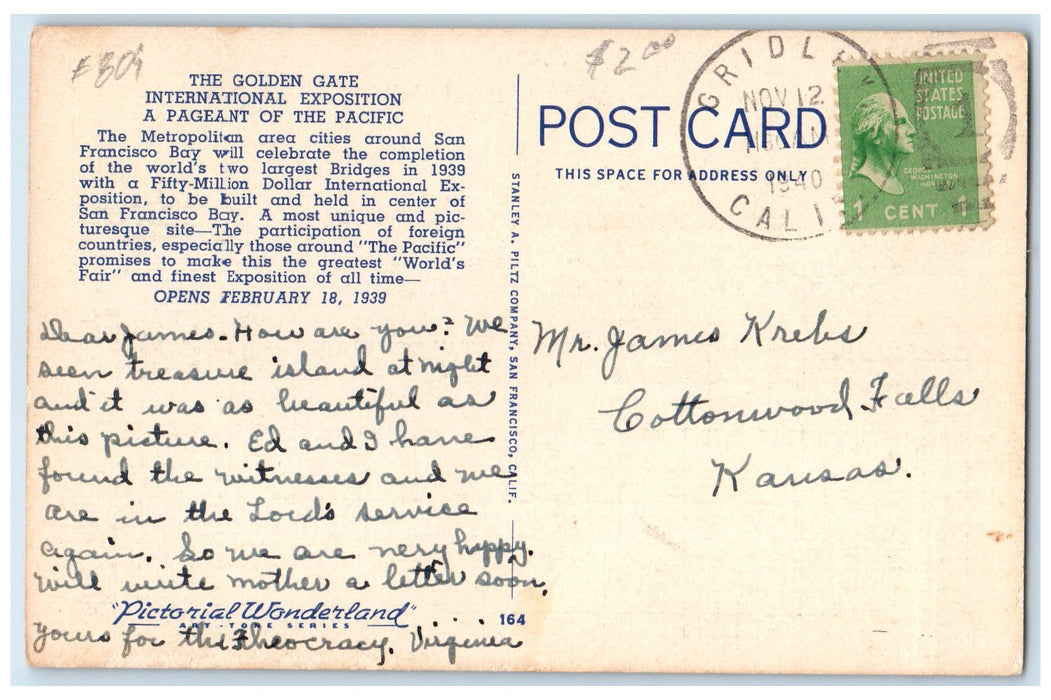 E809
$2.00
THE GOLDEN GATE
INTERNATIONAL EXPOSITION
A PAGEANT OF THE PACIFIC
The Metropolitan area cities around San
Francisco Bay will celebrate the completion
of the world's two largest Bridges in 1939
with a Fifty-Million Dollar International Ex-
position, to be built and held in center of
San Francisco Bay. A most unique and pic-
turesque site—The participation of foreign
countries, especially those around "The Pacific"
promises to make this the greatest "World's
Fair" and finest Exposition of all time—
OPENS FEBRUARY 18, 1939
Dear James. How are you? We
seen treasure island at night
and it was as beautiful as
this picture. Ed and I have
found the witnesses and we
are in the Lord's service
again. So we are very happy.
will write mother a letter soon.
"Pictorial Wonderland"
ART-TONE SERIES
164
yours for the Theocracy. Virginia
STANLEY A. PILTZ COMPANY, SAN FRANCISCO, CALIF.
POST CARD
THIS SPACE FOR ADDRESS ONLY
GRIDLEY
NOV 12
1940
CALIF
UNITED
STATES
POSTAGE
GEORGE
WASHINGTON
1 CENT 1
Mr. James Krebs
Cottonwood Falls
Kansas.